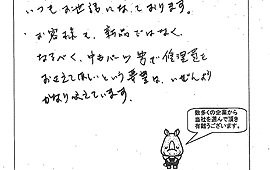 いつもお世話になっております。
お客様で、新品ではなく、
なるべく、中古パーツ等で修理費を
おさえてほしいという要望は、いぜんより
かなり増えています。
数多くの企業から
当社を選んで頂き
有難うございます。